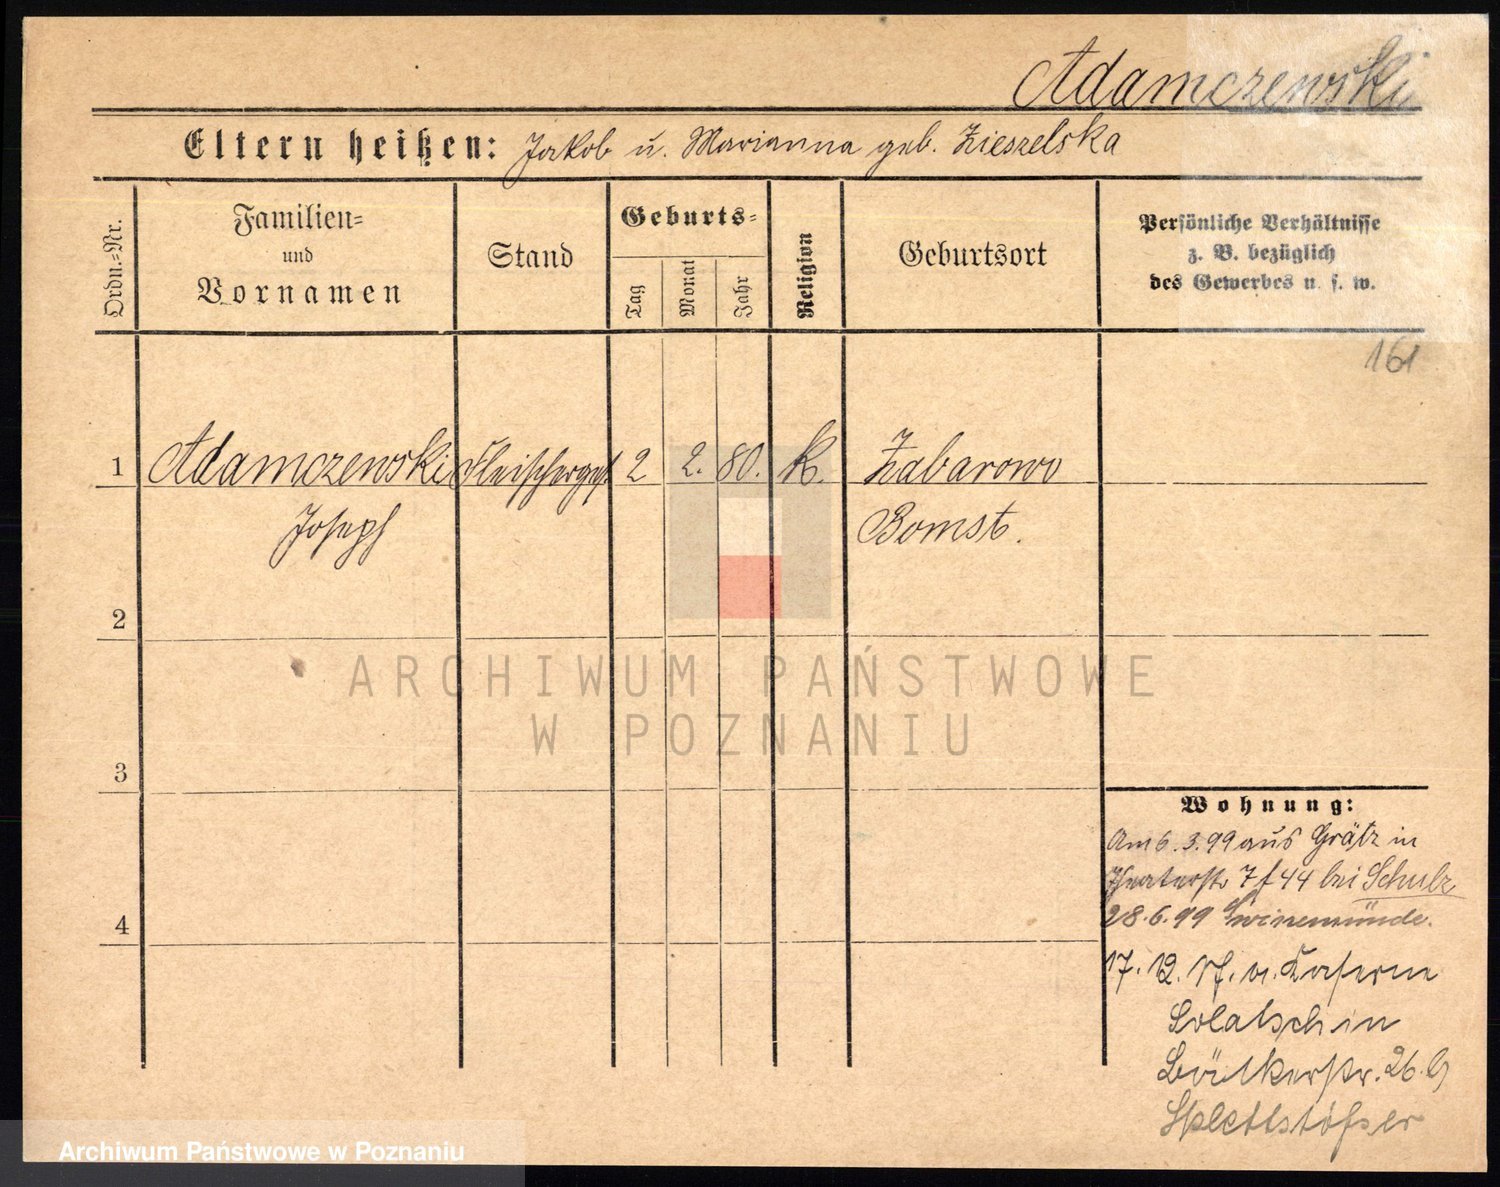 Adamczewski
Eltern heißen: Jakob u. Marianna geb. Zieszelska
Ordn.-Nr.
Familien-
und
Vornamen
Stand
Geburts-
Tag
Monat
Jahr
Religion
Geburtsort
Persönliche Verhältnisse
z. B. bezüglich
des Gewerbes u. s. w.
161
1 Adamczewski Fleischerges. 2 2. 80. k. Zabarowo
Joseph Bomst.
2
ARCHIWUM PAŃSTWOWE
W POZNANIU
3
Wohnung:
Am 6.3.99 aus Grätz in
Theaterstr 7 f 44 bei Schulz
28.6.99 Swinemünde.
4
17. 12.
Bäckerstr. 26.
Archiwum Państwowe w Poznaniu